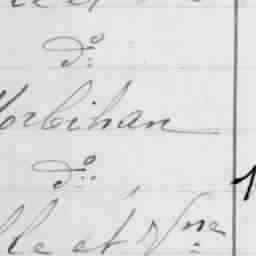 d°
Morbihan
d°
lle et Vne